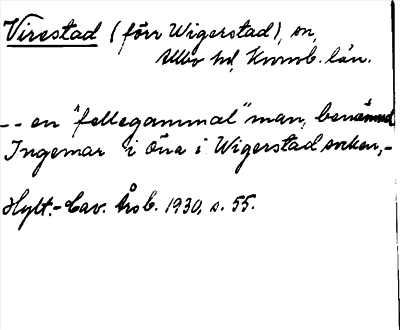 Virestad (förr Wigerstad), sn,
Allbo hd, Kronob. län.
-- en "fellegammal" man, benämnd
Ingemar i Öna i Wigerstad socken,-
Hylt.-Cav. Årsb. 1930, s. 55.